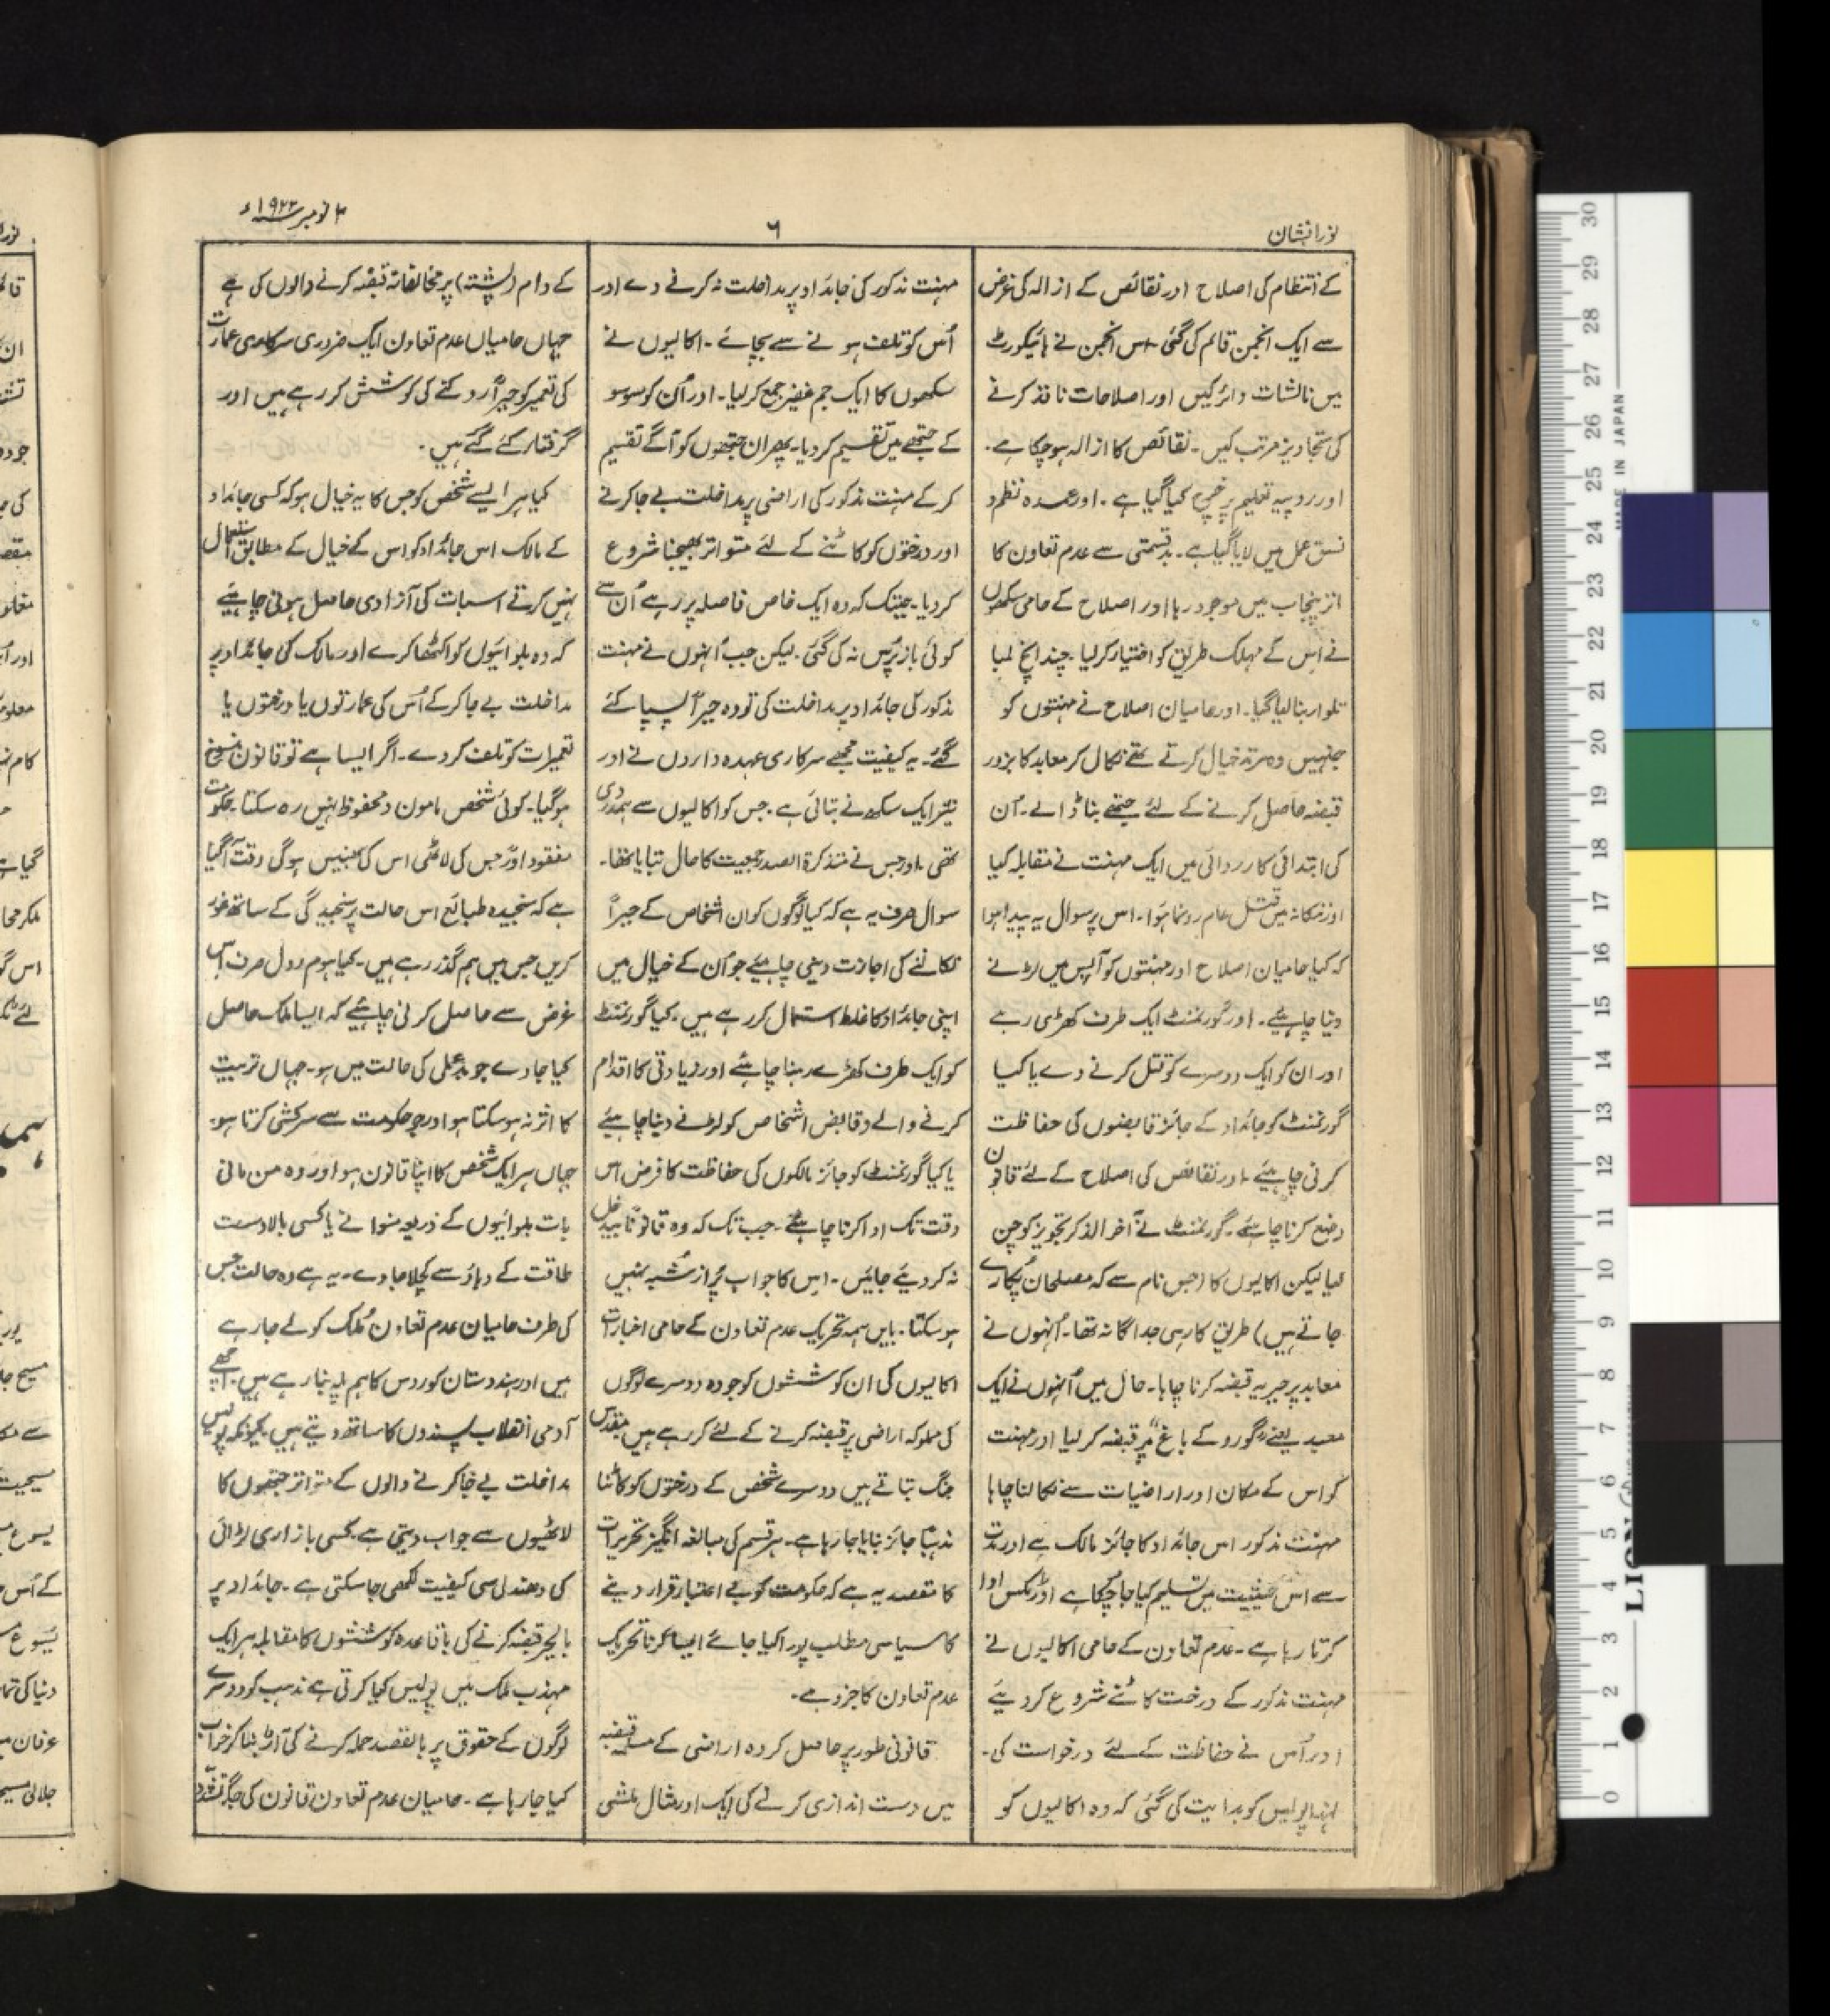 نور افشان
۶
۳ نومبر سنہ ۱۹۲۲ء
کے انتظام کی اصلاح اور نقائص کے ازالہ کی غرض
سے ایک انجمن قائم کی گئی۔ اس انجمن نے ہائیکورٹ
میں نالشات دائر کیں اور اصلاحات نافذ کرنے
کی تجاویز مرتب کیں۔ نقائص کا ازالہ ہو چکا ہے۔
اور روپیہ تعلیم پر خرچ کیا گیا ہے۔ اور عمدہ نظم و
نسق عمل میں لایا گیا ہے۔ بدقسمتی سے عدم تعاون کا
اثر پنجاب میں موجود رہا اور اصلاح کے حامی سکھوں
نے اس کے مہلک طریق کو اختیار کر لیا۔ چند انچ لمبا
تلوار بنا لیا گیا۔ اور حامیان اصلاح نے مہنتوں کو
جنہیں وہ مرتد خیال کرتے تھے نکال کر معابد کا بزور
قبضہ حاصل کرنے کے لئے جتھے بنا ڈالے۔ اُن
کی ابتدائی کارروائی میں ایک مہنت نے مقابلہ کیا
اور ننکانہ میں قتل عام رونما ہوا۔ اس پر سوال یہ پیدا ہوا
کہ کیا حامیان اصلاح اور مہنتوں کو آپس میں لڑنے
دینا چاہیئے۔ اور گورنمنٹ ایک طرف کھڑی رہے
اور ان کو ایک دوسرے کو قتل کرنے دے یا کیا
گورنمنٹ کو جائداد کے جائز قابضوں کی حفاظت
کرنی چاہیئے۔ اور نقائص کی اصلاح کے لئے قانون
وضع کرنا چاہئے۔ گورنمنٹ نے آخر الذکر تجویز کو چن
لیا لیکن اکالیوں کا (جس نام سے کہ مصلحان پکارے
جاتے ہیں) طریق کار ہی جداگانہ تھا۔ اُنہوں نے
معابد پر جبریہ قبضہ کرنا چاہا۔ حال میں اُنہوں نے ایک
معبد یعنے ”گورو کے باغ“ پر قبضہ کر لیا اور مہنت
کو اس کے مکان اور اراضیات سے نکالنا چاہا
مہنت مذکور اس جائداد کا جائز مالک ہے اور مدت
سے اس حیثیت میں تسلیم کیا جا چکا ہے اور ٹیکس ادا
کرتا رہا ہے۔ عدم تعاون کے حامی اکالیوں نے
مہنت مذکور کے درخت کاٹنے شروع کر دیئے
اور اُس نے حفاظت کے لئے درخواست کی۔
لہذا پولیس کو ہدایت کی گئی کہ وہ اکالیوں کو
مہنت مذکور کی جائداد پر مداخلت نہ کرنے دے اور
اُس کو تلف ہونے سے بچائے۔ اکالیوں نے
سکھوں کا ایک جم غفیر جمع کر لیا۔ اور اُن کو سو سو
کے جتھے میں تقسیم کر دیا۔ پھر ان جتھوں کو آگے تقسیم
کر کے مہنت مذکور کی اراضی پر مداخلت بے جا کرنے
اور درختوں کو کاٹنے کے لئے متواتر بھیجنا شروع
کر دیا۔ جبتک کہ وہ ایک خاص فاصلہ پر رہے اُن سے
کوئی باز پرس نہ کی گئی۔ لیکن جب اُنہوں نے مہنت
مذکور کی جائداد پر مداخلت کی تو وہ جبراً پسپا کئے
گئے۔ یہ کیفیت مجھے سرکاری عہدہ داروں نے اور
نیز ایک سکھ نے بتائی ہے۔ جس کو اکالیوں سے ہمدردی
تھی۔ اور جس نے متذکرۃ الصدر جمعیت کا حال بتایا تھا۔
سوال صرف یہ ہے کہ کیا لوگوں کو ان اشخاص کے جبراً
نکالنے کی اجازت دینی چاہیئے جو اُن کے خیال میں
اپنی جائداد کا غلط استعمال کر رہے ہیں۔ کیا گورنمنٹ
کو ایک طرف کھڑے رہنا چاہئے اور زیادتی کا اقدام
کرنے والے و قابض اشخاص کو لڑنے دینا چاہیئے
یا کیا گورنمنٹ کو جائز مالکوں کی حفاظت کا فرض اس
وقت تک ادا کرنا چاہئے۔ جب تک کہ وہ قانوناً بیدخل
نہ کر دیئے جائیں۔ اس کا جواب پُر از شبہ نہیں
ہو سکتا۔ بایں ہمہ تحریک عدم تعاون کے حامی اخبارات
اکالیوں کی ان کوششوں کو جو وہ دوسرے لوگوں
کی مملوکہ اراضی پر قبضہ کرنے کے لئے کر رہے ہیں مقدس
جنگ بتاتے ہیں دوسرے شخص کے درختوں کو کاٹنا
مذہباً جائز بنایا جا رہا ہے۔ ہر قسم کی مبالغہ انگیز تحریرات
کا مقصد یہ ہے کہ حکومت کو بے اعتبار قرار دینے
کا سیاسی مطلب پورا کیا جائے ایسا کرنا تحریک
عدم تعاون کا جزو ہے۔
قانونی طور پر حاصل کردہ اراضی کے قبضہ
میں دست اندازی کرنے کی ایک اور مثال ملشی
کے دام (پُشتہ) پر مخالفانہ قبضہ کرنے والوں کی ہے
جہاں حامیاں عدم تعاون ایک ضروری سرکاری عمارت
کی تعمیر کو جبراً روکنے کی کوشش کر رہے ہیں اور
گرفتار کئے گئے ہیں۔
کیا ہر ایسے شخص کو جس کا یہ خیال ہو کہ کسی جائداد
کے مالک اس جائداد کو اس کے خیال کے مطابق استعمال
نہیں کرتے اسبات کی آزادی حاصل ہونی چاہیئے
کہ وہ بلوائیوں کو اکٹھا کرے اور مالک کی جائداد پر
مداخلت بے جا کر کے اُس کی عمارتوں یا درختوں یا
تعمیرات کو تلف کر دے۔ اگر ایسا ہے تو قانون منسوخ
ہو گیا۔ کوئی شخص مامون و محفوظ نہیں رہ سکتا۔ حکومت
مفقود اور جس کی لاٹھی اس کی بھینس ہو گی وقت آ گیا
ہے کہ سنجیدہ طبائع اس حالت پر سنجیدگی کے ساتھ غور
کریں جس میں ہم گذر رہے ہیں۔ کیا ہوم رول صرف اس
غرض سے حاصل کرنی چاہیئے کہ ایسا ملک حاصل
کیا جاوے جو بدعملی کی حالت میں ہو۔ جہاں تربیت
کا اثر نہ ہو سکتا ہو اور جو حکومت سے سرکشی کرتا ہو۔
جہاں ہر ایک شخص کا اپنا قانون ہو اور وہ من مانی
بات بلوائیوں کے ذریعہ منوانے یا کسی بالادست
طاقت کے دباؤ سے کچلا جاوے۔ یہ ہے وہ حالت جس
کی طرف حامیان عدم تعاون مُلک کو لے جا رہے
ہیں اور ہندوستان کو روس کا ہم پلہ بنا رہے ہیں۔ اچھے
آدمی انقلاب پسندوں کا ساتھ دیتے ہیں۔ کیونکہ پولیس
مداخلت بے جا کرنے والوں کے متواتر جتھوں کا
لاٹھیوں سے جواب دیتی ہے۔ کسی بازاری لڑائی
کی دھندلی سی کیفیت لکھی جا سکتی ہے۔ جائداد پر
بالجبر قبضہ کرنے کی باقاعدہ کوششوں کا مقابلہ ہر ایک
مہذب ملک میں پولیس کیا کرتی ہے مذہب کو دوسرے
لوگوں کے حقوق پر بالقصد حملہ کرنے کی آڑ بنا کر خراب
کیا جا رہا ہے۔ حامیان عدم تعاون قانون کی جگہ تشدد